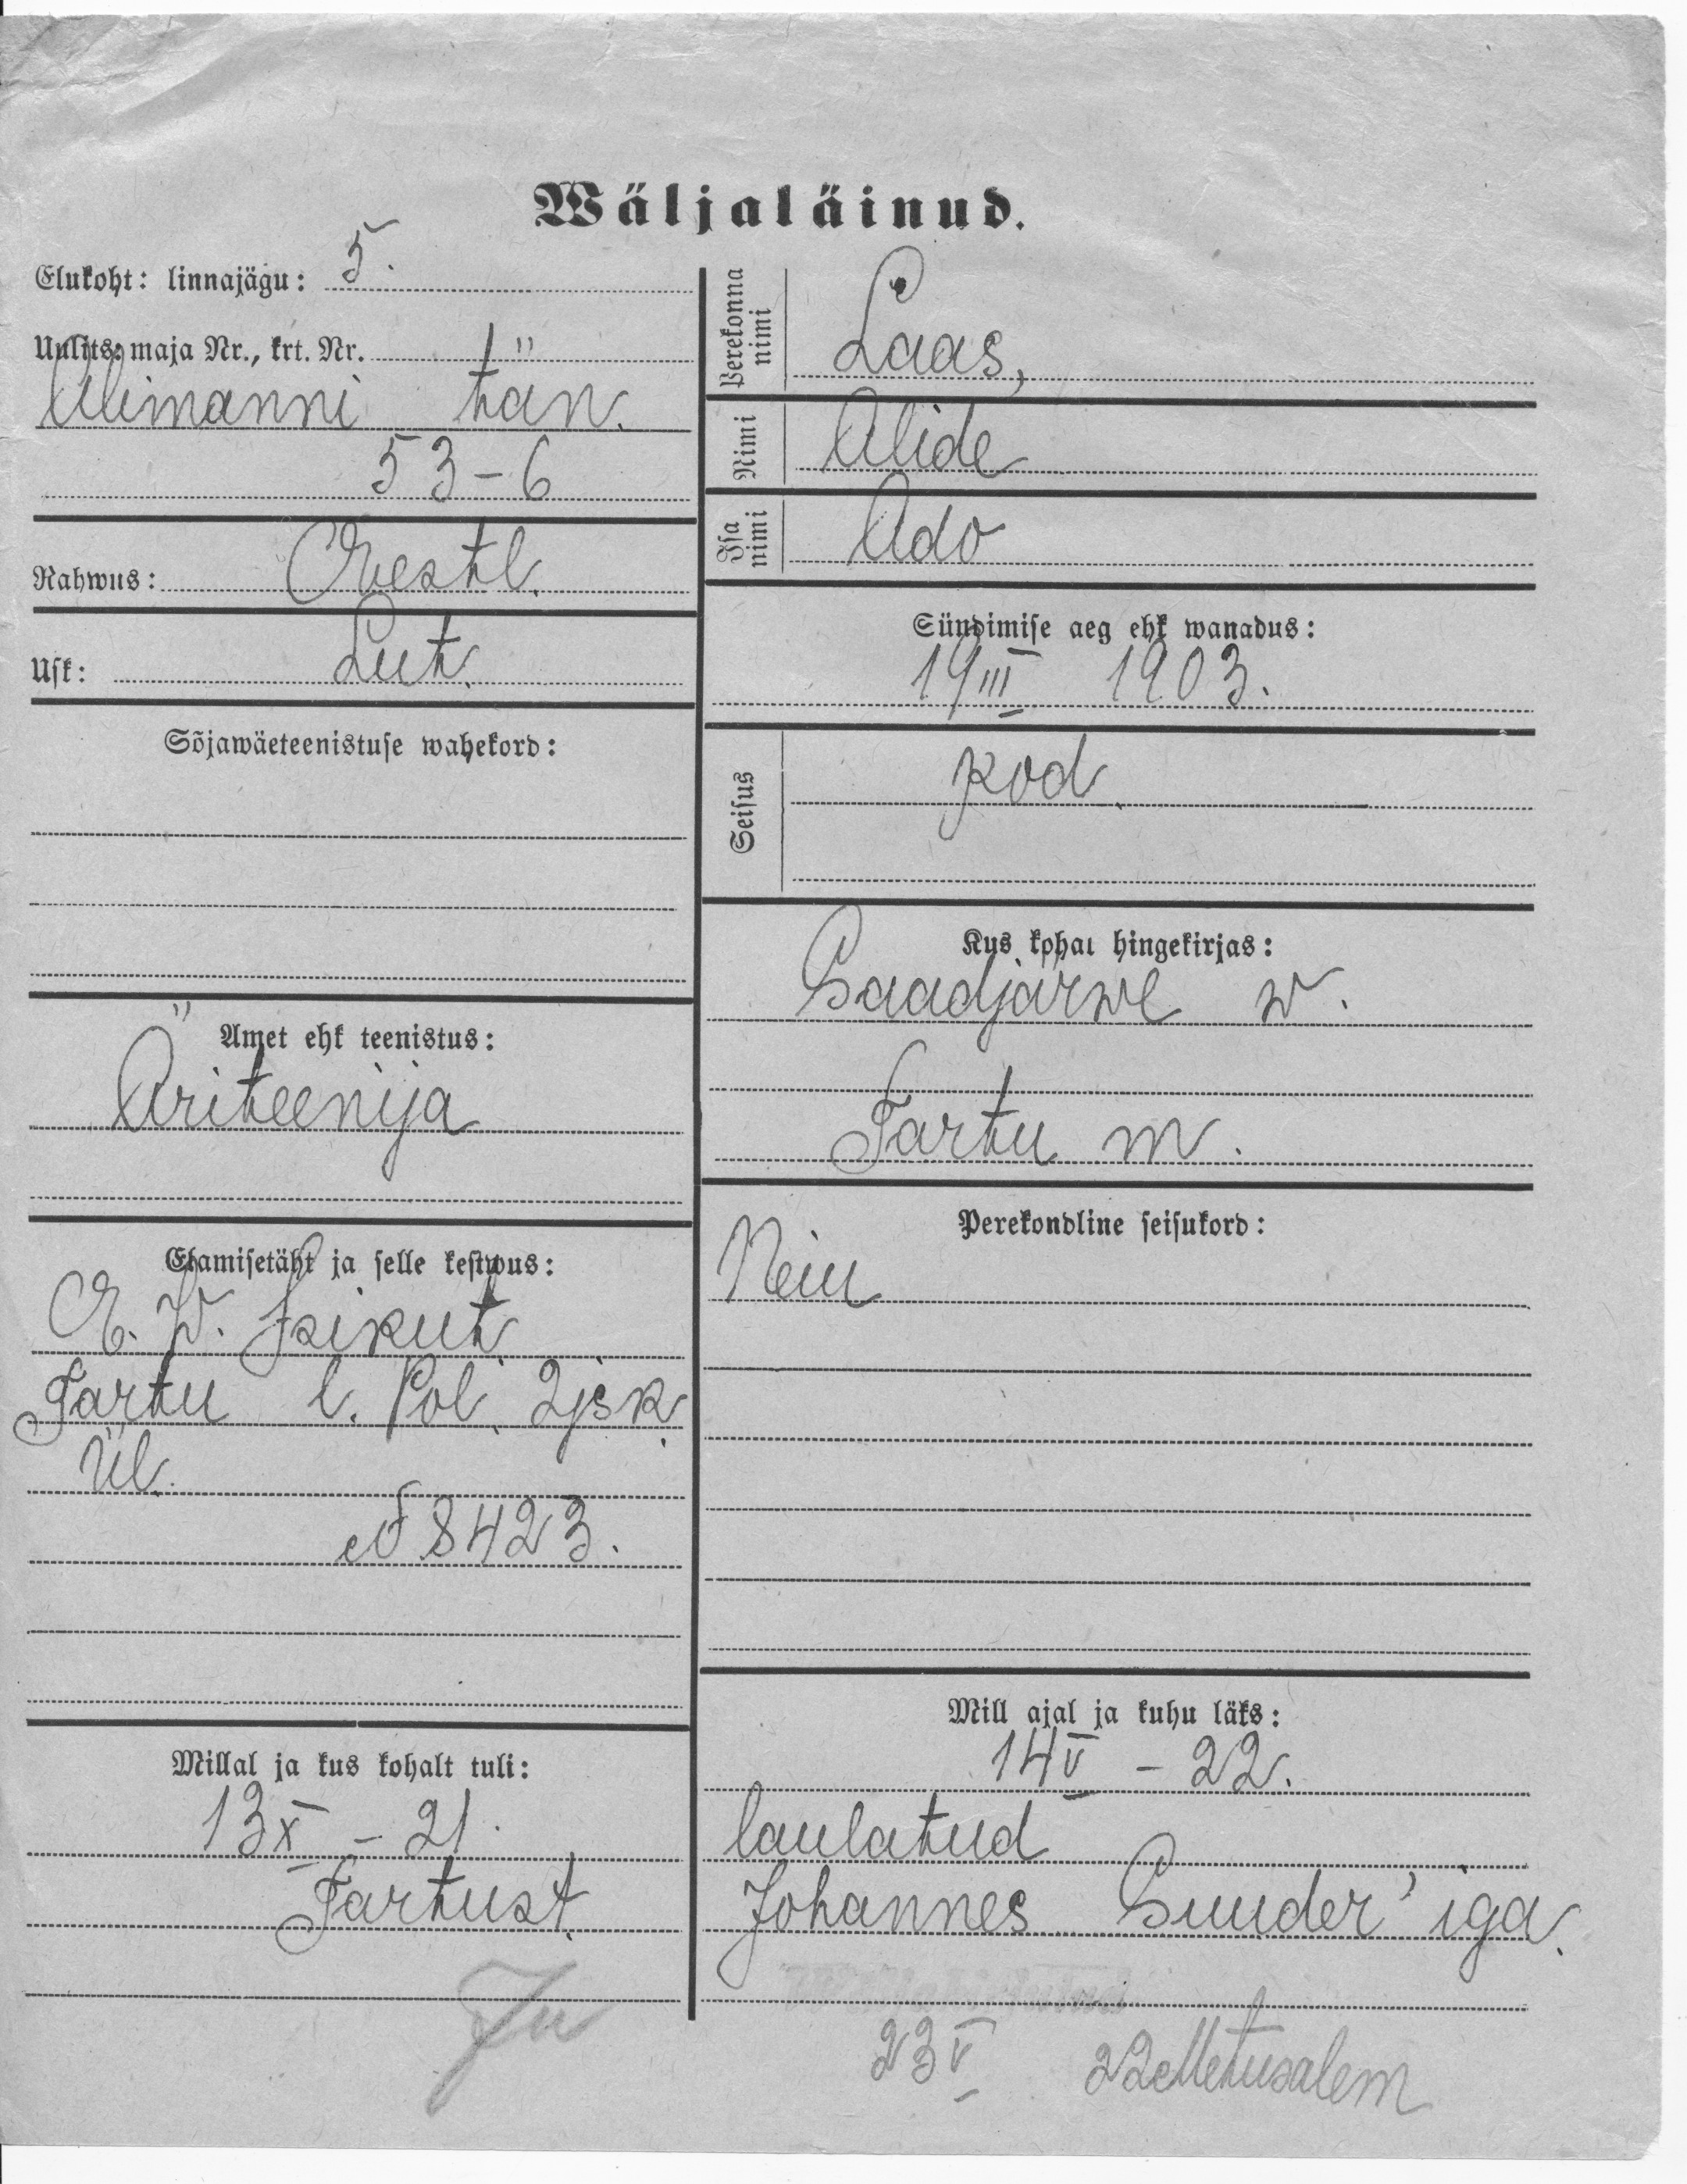 Wäljaläinud.
Elukoht: linnajägu: 5.
Uulits: maja Nr., krt. Nr.
Alimanni tän.
53-6
Rahwus: Eestl.
Usk: Lut.
Sõjawäeteenistuse wahekord:
Amet ehk teenistus:
Äriteenija
Elamisetäht ja selle kestwus:
E. W. Isikut.
Tartu l. Pol. 2 jsk.
Ül.
№ 8423.
Millal ja kus kohalt tuli:
13 X - 21.
Tartust.
Perekonna nimi
Laas,
Nimi
Alide
Isa nimi
Ado
Sündimise aeg ehk wanadus:
19 III 1903.
Seisus
kod.
Kus kohal hingekirjas:
Saadjärwe w.
Tartu m.
Perekondline seisukord:
Neiu
Mill ajal ja kuhu läks:
14 V - 22.
laulatud
Johannes Suuder'iga.
23 V 22 Metusalem